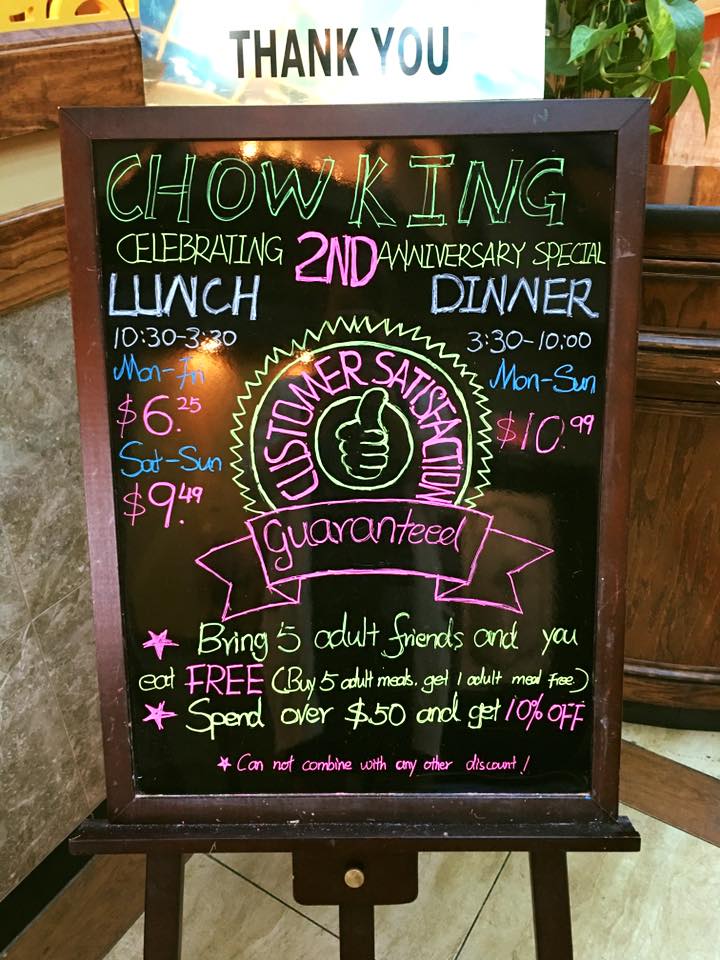 THANK YOU
CHOW KING
CELEBRATING 2ND ANNIVERSARY SPECIAL
LUNCH
10:30-3:30
Mon-Fri
$6.25
Sat-Sun
$9.49
DINNER
3:30-10:00
Mon-Sun
$10.99
CUSTOMER SATISFACTION
guaranteeed
Bring 5 adult friends and you
eat FREE (Buy 5 adult meals. get 1 adult meal free.)
Spend over $50 and get 10% OFF
* Can not combine with any other discount!